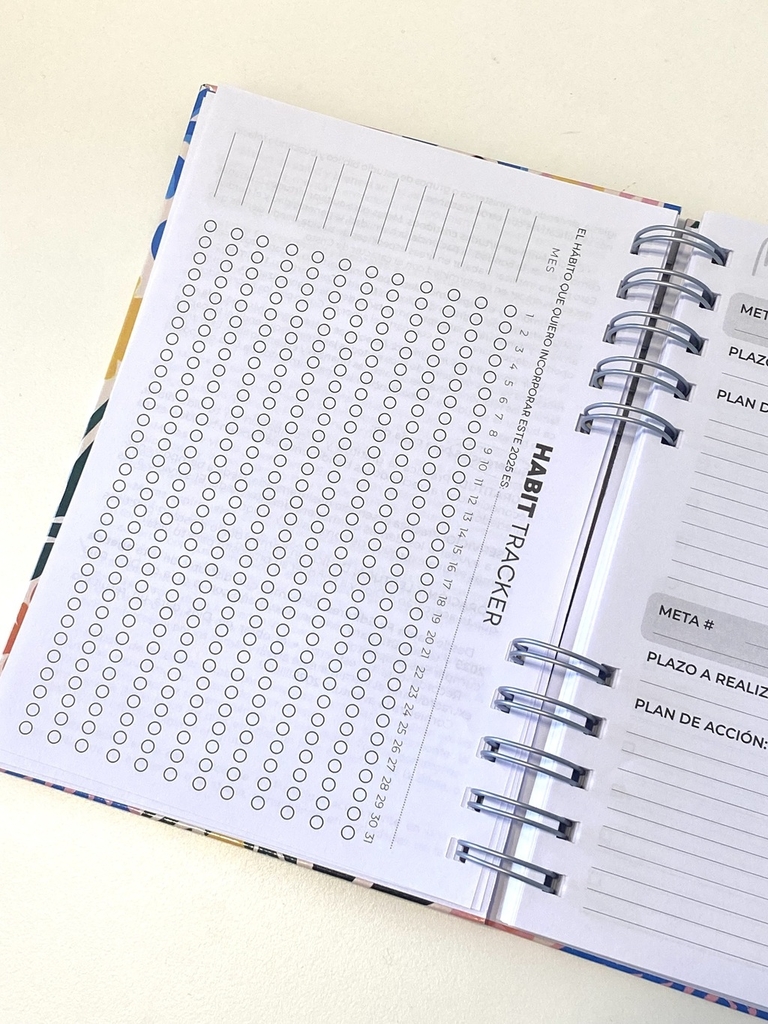 HABIT TRACKER
EL HÁBITO QUE QUIERO INCORPORAR ESTE 2025 ES:
MES
1 2 3 4 5 6 7 8 9 10 11 12 13 14 15 16 17 18 19 20 21 22 23 24 25 26 27 28 29 30 31
MET
PLAZO
PLAN D
META #
PLAZO A REALIZ
PLAN DE ACCIÓN: